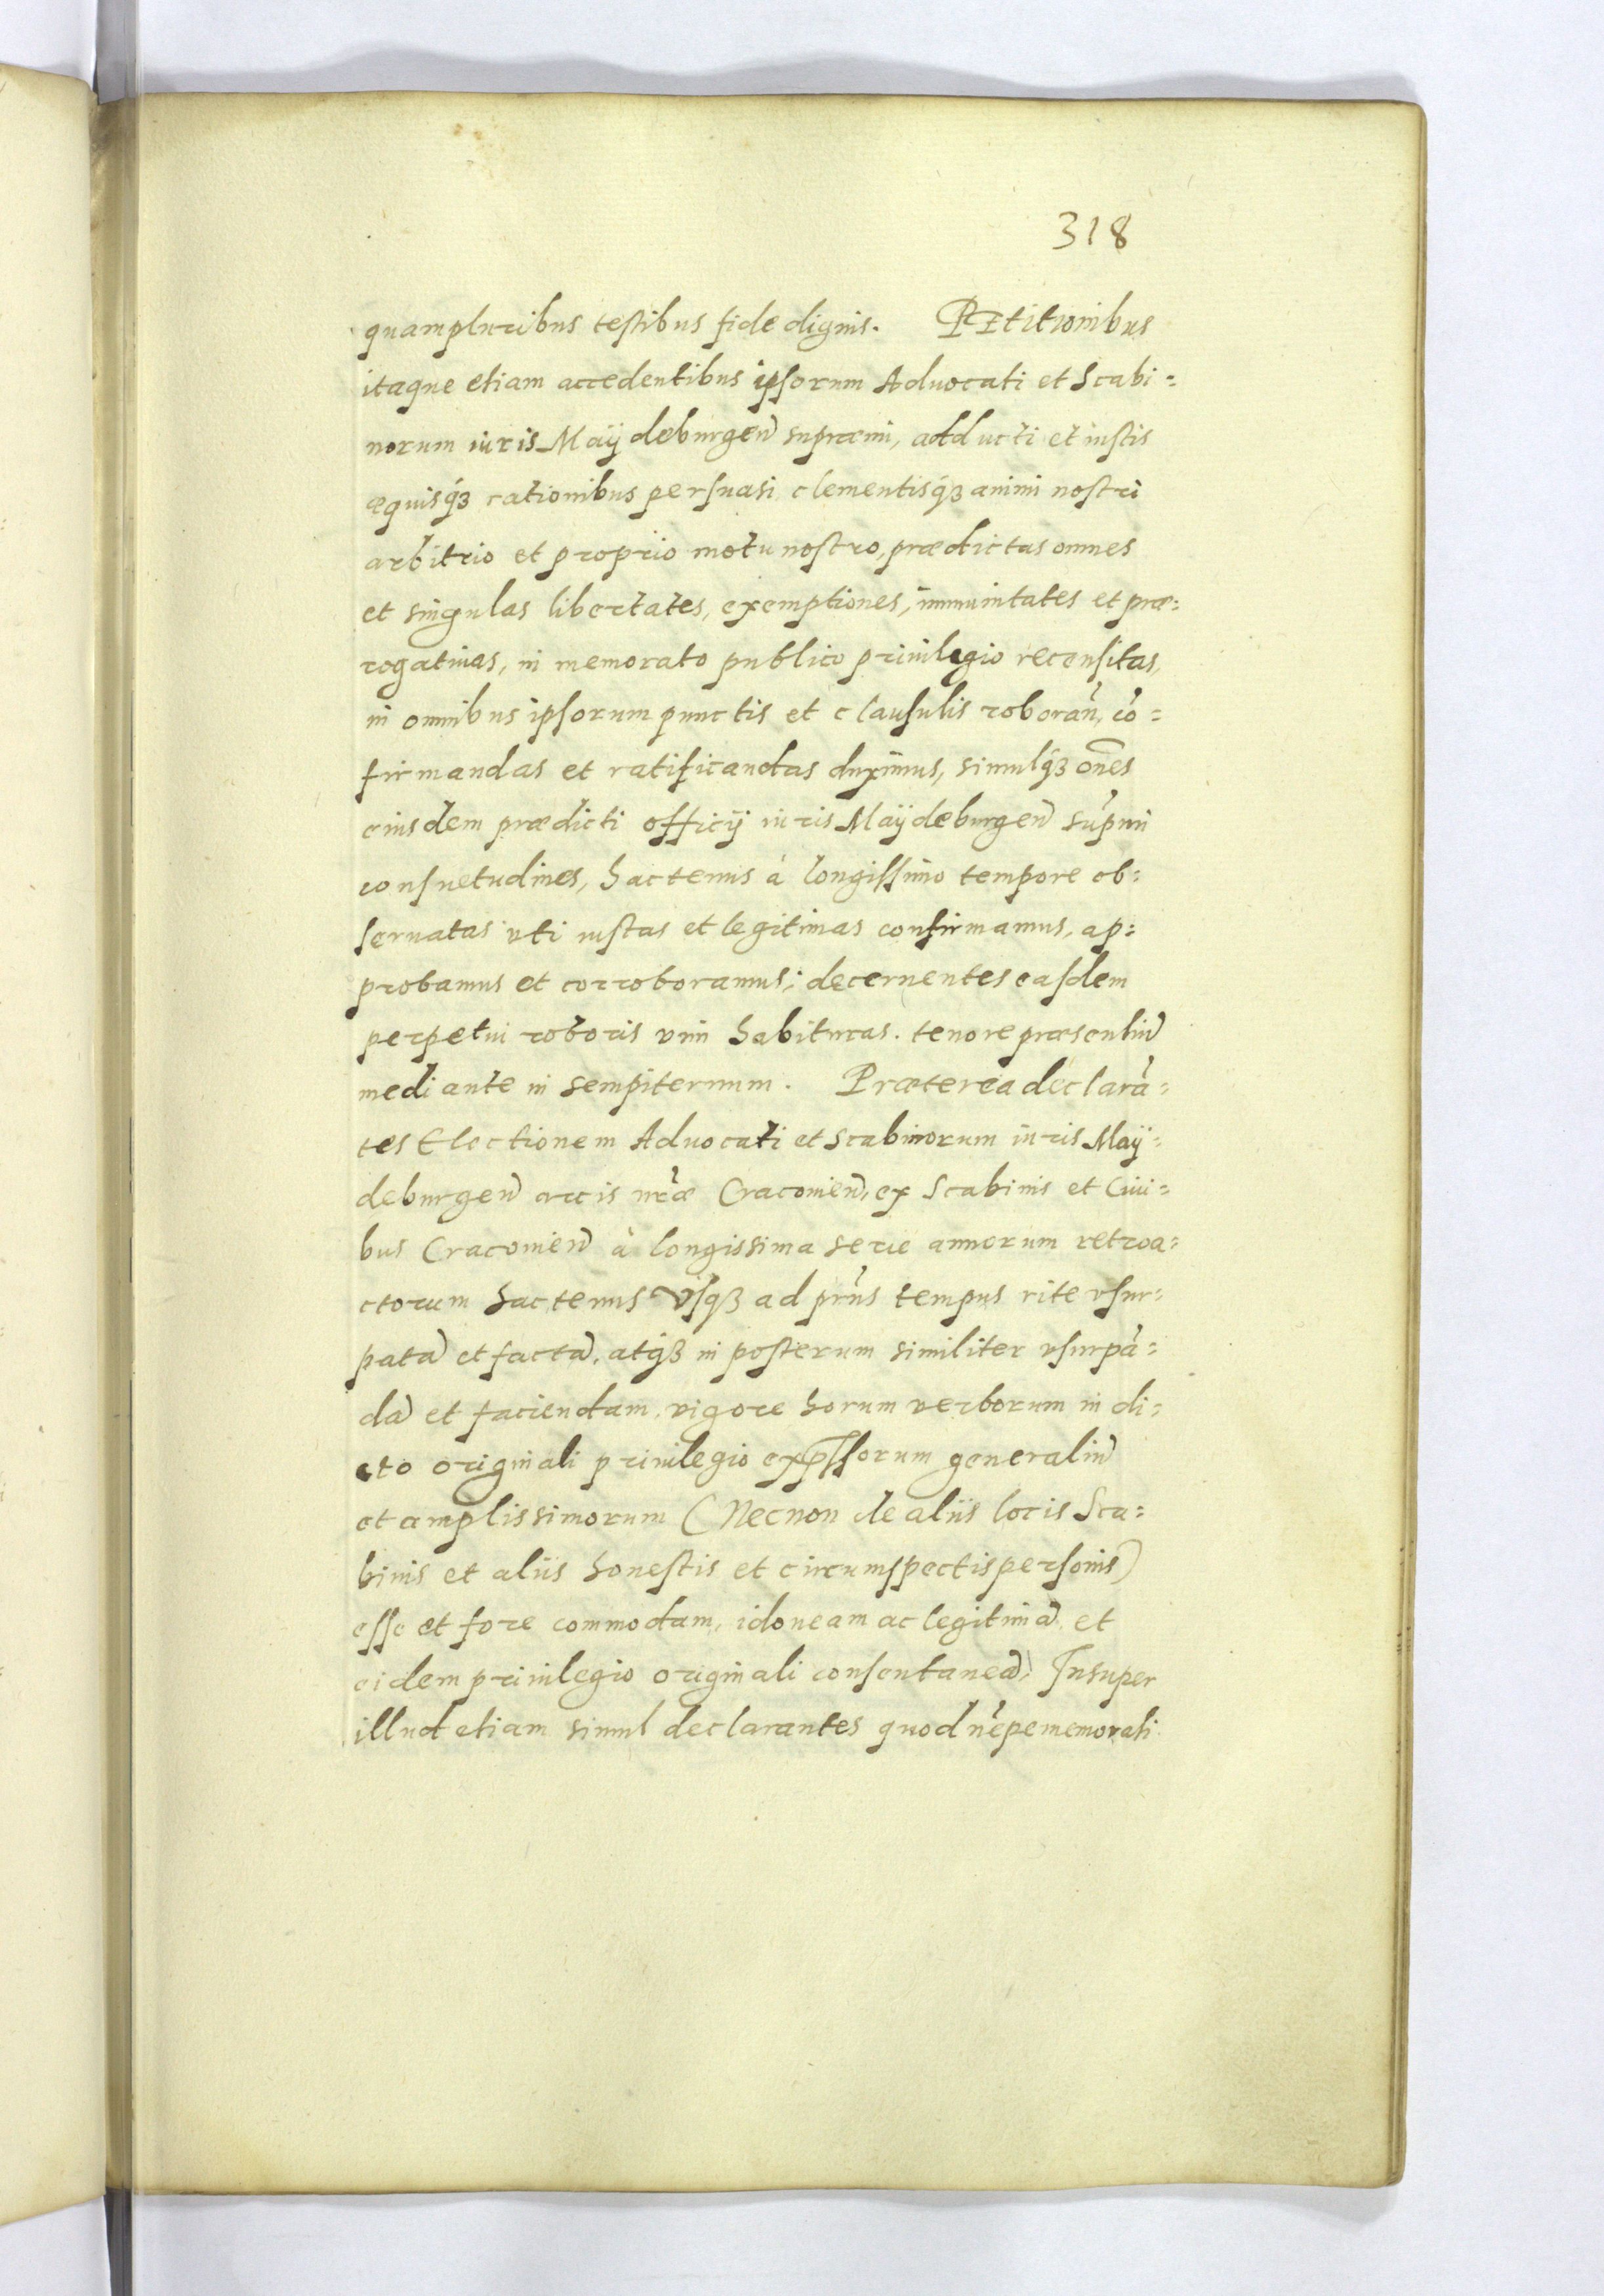 318
quampluribus testibus fide dignis. PEtitionibus
itaque etiam accedentibus ipsorum Aduocati et Scabi=
norum iuris Maÿdeburgeñ supræmi, adducti et iustis
æquisq́ꝫ rationibus persuasi clementisq́ꝫ animi nostri
arbitrio et proprio motu nostro, prædictas omnes
et singulas libertates, exemptiones, immunitates et præ=
rogatiuas, in memorato publico priuilegio recensitas,
in omnibus ipsorum punctis et clausulis roborañ, cõ=
firmandas et ratificandas duximus, simulq́ꝫ oẽs
eiusdem prædicti officij iuris Maÿdeburgeñ sup̃mi
consuetudines, hactenus à longissimo tempore ob=
seruatas vti iustas et legitimas confirmamus, ap=
probamus et corroboramus; decernentes easdem
perpetui roboris vim habituras. tenore præsentiũ
mediante in sempiternum. Præterea declarã=
tes Electionem Aduocati et Scabinorum iuris Maÿ=
deburgeñ arcis nr̃æ Cracouieñ, ex Scabinis et Ciui=
bus Cracouieñ à longissima serie annorum retroa=
ctorum hactenus vsqꝫ ad pr̃ns tempus rite vsur=
patã et factã, atq́ꝫ in posterum similiter vsurpã=
dã et faciendam, vigore horum verborum in di=
cto originali priuilegio exp̃ssorum generaliũ
et amplissimorum (Necnon de aliis locis Sca=
binis et aliis honestis et circumspectis personis)
esse et fore commodam, idoneam ac legitimã et
eidem priuilegio originali consentaneã; Insuper
illud etiam simul declarantes quod nẽpe memorati